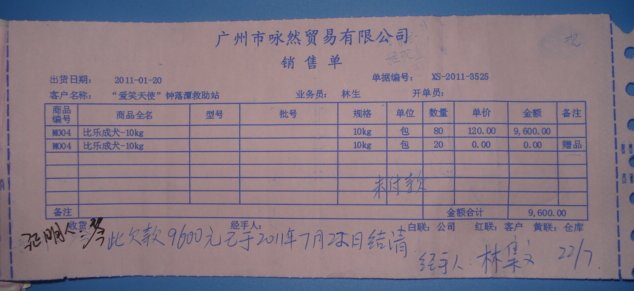 广州市咏然贸易有限公司
销售单
出货日期: 2011-01-20 单据编号: XS-2011-3525
客户名称: “爱笑天使”钟落潭救助站 业务员: 林生 开单员:
商品编号 商品全名 型号 批号 规格 单位 数量 单价 金额 备注
M004 比乐成犬-10kg 10kg 包 80 120.00 9,600.00
M004 比乐成犬-10kg 10kg 包 20 0.00 0.00 赠品
未付款
备注 金额合计 9,600.00
收货 经手人: 白联: 公司 红联: 客户 黄联: 仓库
证明人: 此欠款9600元已于2011年7月22日结清
经手人 林集文 22/7